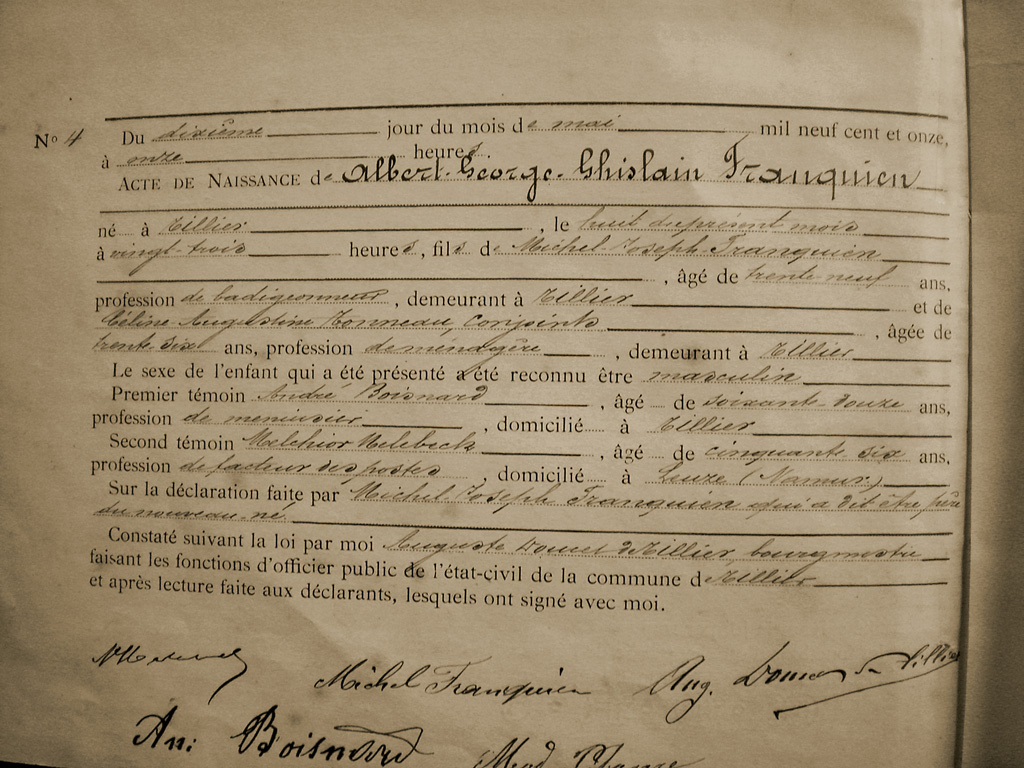 Nº 4 Du dixième jour du mois de mai mil neuf cent et onze,
à onze heures.
ACTE DE NAISSANCE de Albert-George-Ghislain Franquien
né à Tillier, le huit du présent mois
à vingt-trois heures, fils de Michel-Joseph Franquien
, âgé de trente-neuf ans,
profession de badigeonneur, demeurant à Tillier et de
Céline Augustine Tonneau, conjoints, âgée de
trente six ans, profession de ménagère, demeurant à Tillier
Le sexe de l'enfant qui a été présenté a été reconnu être masculin
Premier témoin André Boisnard, âgé de soixante-douze ans,
profession de menuisier, domicilié à Tillier
Second témoin Melchior, âgé de cinquante six ans,
profession de facteur des postes, domicilié à Leuze (Namur)
Sur la déclaration faite par Michel Joseph Franquien qui a dit être père
du nouveau-né
Constaté suivant la loi par moi Auguste de Tillier, bourgmestre
faisant les fonctions d'officier public de l'état-civil de la commune de Tillier
et après lecture faite aux déclarants, lesquels ont signé avec moi.
Michel Franquien Aug. de Tillier
Boisnard